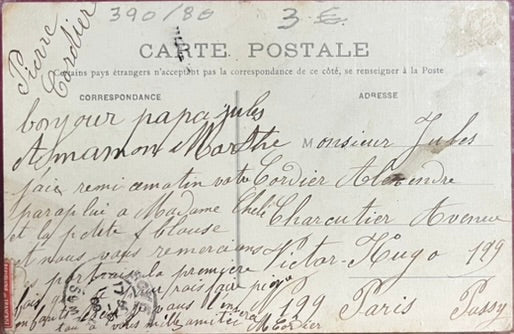 390/80
3 €
Pierre
Cordier
CARTE POSTALE
Certains pays étrangers n'acceptant pas la correspondance de ce côté, se renseigner à la Poste
CORRESPONDANCE
bonjour papa jules
et maman Marthe
jai remi ce matin votre
paraplui a Madame
et la petite blouse
et nous vous remercions
la première
fois
a vous mille amitié M Cordier
ADRESSE
Monsieur Jules
Cordier Alexendre
Charcutier Avenue
Victor-Hugo 199
199 Paris Passy